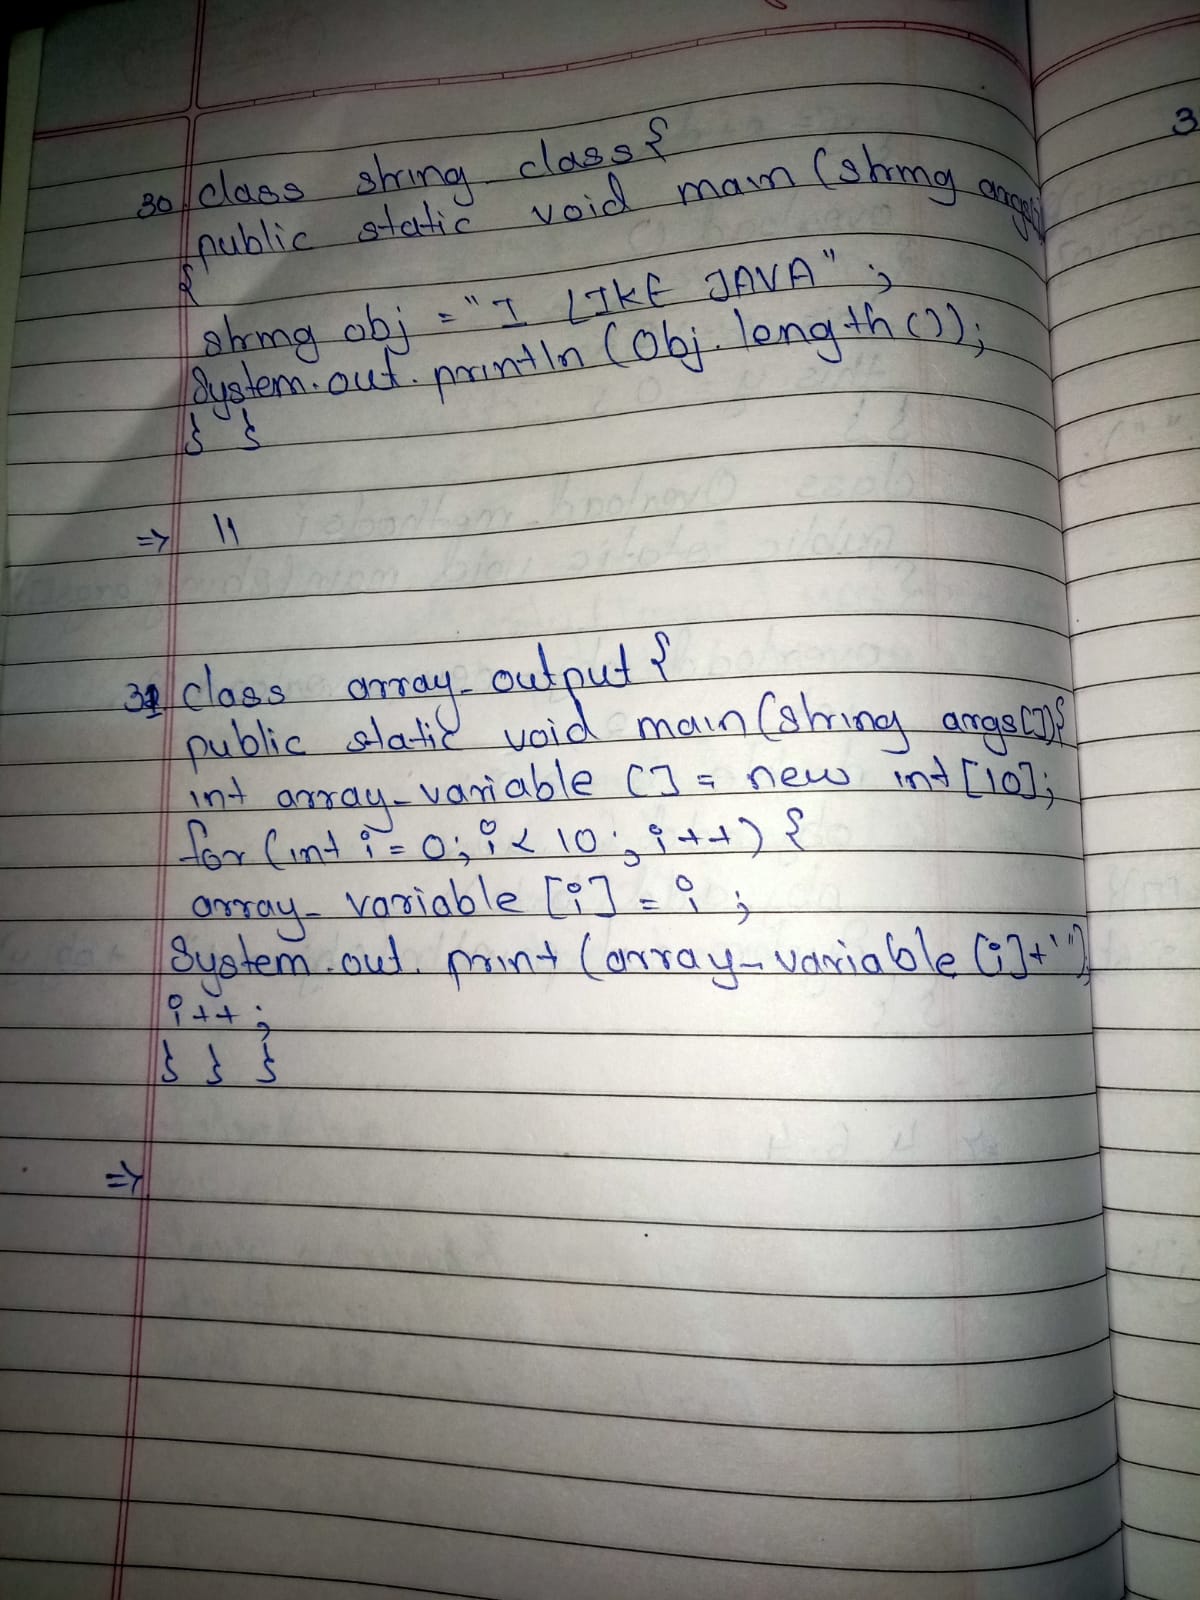 30. class string_class{
public static void main (string args[]
{
string obj = "I LIKE JAVA" ;
System.out.println (obj.length());
} }
=> 11
31 class array_output {
public static void main (string args[]){
int array_variable [] = new int [10];
for (int i = 0; i < 10 ; i++) {
array_variable [i] = i ;
System.out.print (array_variable [i]+" ")
i++ ;
} } }
=>
3